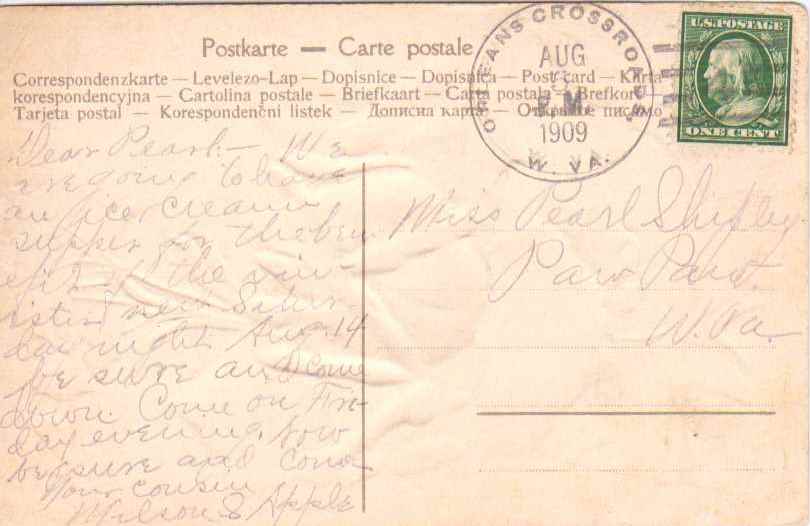 Postkarte — Carte postale
Correspondenzkarte — Levelezo-Lap — Dopisnice — Dopisnica — Post card — Karta
korespondencyjna — Cartolina postale — Briefkaart — Carta postala — Brefkort
Tarjeta postal — Korespondenční listek — Дописна карта — Открытое письмо
ORLEANS CROSSROADS
AUG
P.M.
1909
W. VA.
U.S. POSTAGE
ONE CENT
Dear Pearl — We
are going to have
an ice cream
supper for the ben
efit of the min-
ister next Satur-
day night Aug. 14
be sure and come
down. Come on Fri-
day evening. Now
be sure and come
Your cousin
Wilson S Apple
Miss Pearl Shipley
Paw Paw.
W. Va.